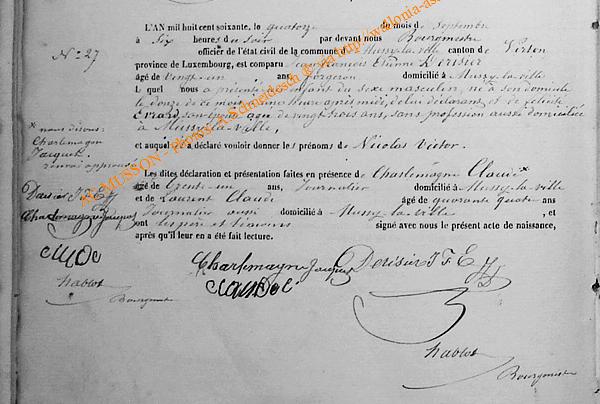 L'AN mil huit cent soixante, le quatorze du mois de Septembre
à Six heures du soir par devant nous Bourgmestre
N° 27
officier de l'état civil de la commune de Mussy-la-ville canton de Virton
province de Luxembourg, est comparu Jean françois Etienne Derisier
âgé de Vingt-un ans, forgeron domicilié à Mussy-la-ville
L quel nous a présenté un enfant du sexe masculin, né à son domicile
le douze de ce mois à une heure après midi, de lui déclarant, et de félicité
Evrard son épouse âgée de vingt trois ans, sans profession aussi domiciliée
à Mussy-la-Ville,
et auquel il a déclaré vouloir donner les prénoms de Nicolas Victor.
* nous disons:
Charlemagne
Jacques
renvoi approuvé
Les dites déclaration et présentation faites en présence de Charlemagne Claude *
âgé de Trente-un ans, Journalier domicilié à Mussy-la-ville
et de Laurent Claude âgé de quarante quatre ans
Journalier aussi domicilié à Mussy-la-ville, et
ont les père et témoins signé avec nous le présent acte de naissance,
après qu'il leur en a été fait lecture.
Derisier J F E
Charlemagne Jacques
Claude
hablot
Bourgmestre
Charlemagne Jacques Derisier J F E
Claude
hablot
Bourgmestre